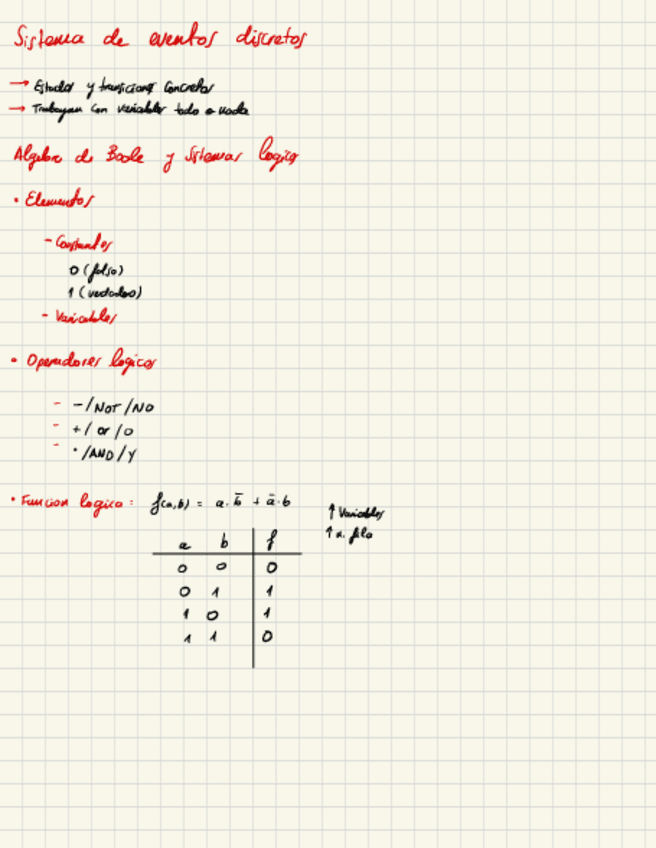 Sistema de eventos discretos
→ Estados y transiciones concretos
→ Trabajan con variables todo o nada
Algebra de Boole y Sistemas logicos
• Elementos
- Constantes
0 (falso)
1 (verdadero)
- Variables
• Operadores logicos
- -/NOT/NO
- +/or/o
- ·/AND/Y
• Funcion logica: f(a,b) = a·b̄ + ā·b
↑ Variables
↑ n. fila
a b f
0 0 0
0 1 1
1 0 1
1 1 0